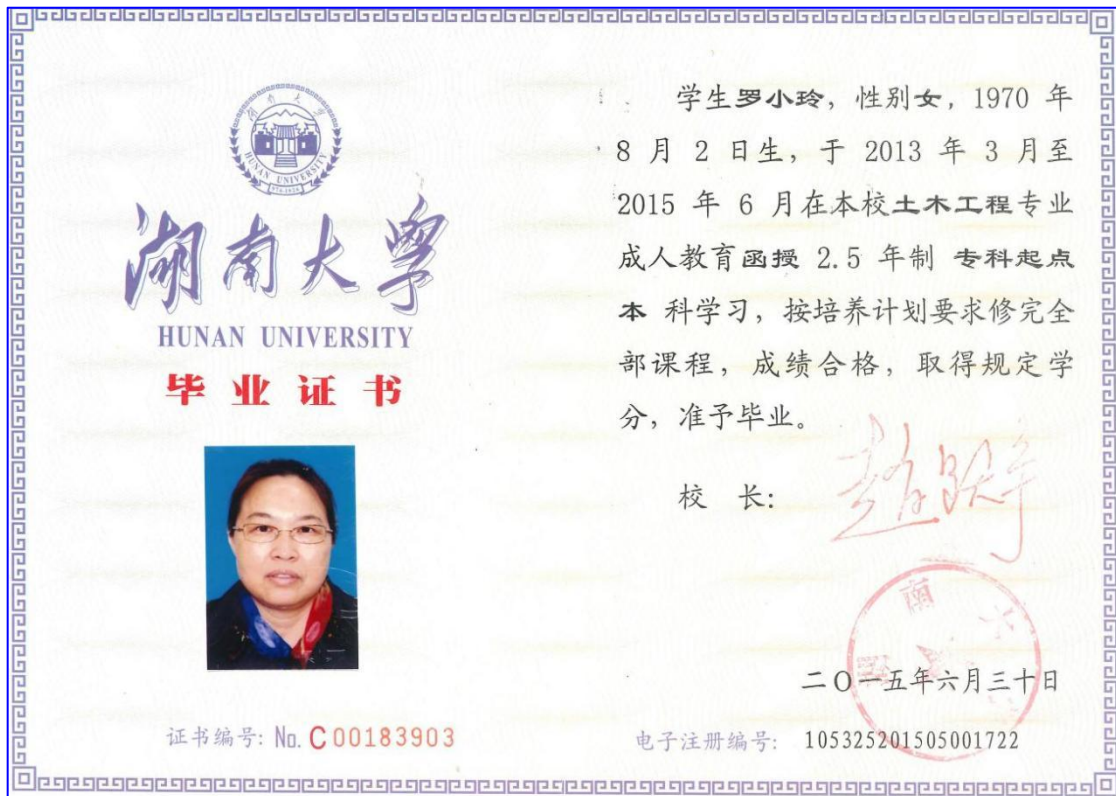 湖南大学
HUNAN UNIVERSITY
湖南大學
HUNAN UNIVERSITY
毕业证书
证书编号: No. C 00183903
学生罗小玲，性别女，1970 年
8 月 2 日生，于 2013 年 3 月至
2015 年 6 月在本校土木工程专业
成人教育函授 2.5 年制 专科起点
本 科学习，按培养计划要求修完全
部课程，成绩合格，取得规定学
分，准予毕业。
校 长:
二O一五年六月三十日
电子注册编号: 105325201505001722